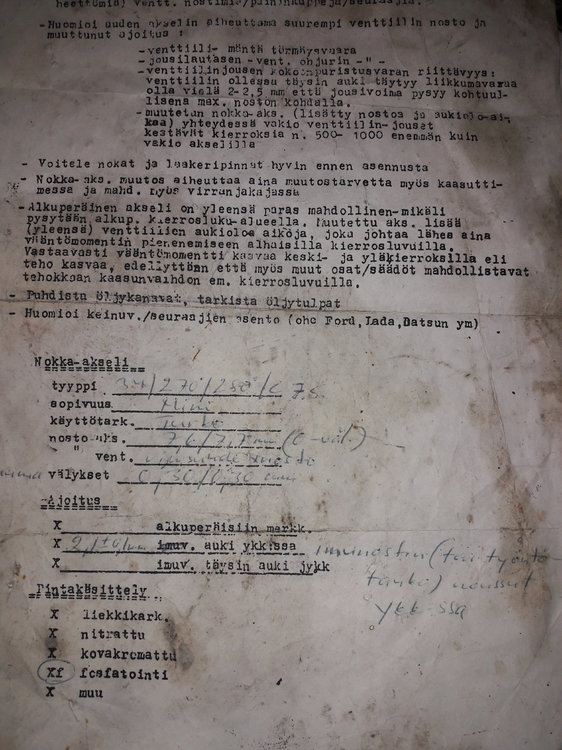 heettömiä) ventt. nostimia/painin
-Huomioi uuden akselin aiheuttama suurempi venttiilin nosto ja
muuttunut ajoitus :
-venttiili- mäntä törmäysvaara
-jousilautasen -vent. ohjurin -"-
-venttiilinjousen kokoonpuristusvaran riittävyys:
venttiilin ollessa täysin auki täytyy liikkumavaraa
olla vielä 2-2,5 mm että jousivoima pysyy kohtuul-
lisena max. noston kohdalla.
-muutetun nokka-aks. (lisätty nostoa ja aukiolo-ai-
kaa) yhteydessä vakio venttiilin-jouset
kestävät kierroksia n. 500- 1000 enemmän kuin
vakio akselilla
- Voitele nokat ja laakeripinnat hyvin ennen asennusta
- Nokka-aks. muutos aiheuttaa aina muutostarvetta myös kaasutti-
messa ja mahd. myös virranjakajassa
-Alkuperäinen akseli on yleensä paras mahdollinen-mikäli
pysytään alkup. kierrosluku-alueella. Muutettu aks. lisää
(yleensä) venttiilien aukioloaikoja, joka johtaa lähes aina
vääntömomentin pienenemiseen alhaisilla kierrosluvuilla.
Vastaavasti vääntömomentti kasvaa keski- ja yläkierroksilla eli
teho kasvaa, edellyttäen että myös muut osat/säädöt mahdollistavat
tehokkaan kaasunvaihdon em. kierrosluvuilla.
- Puhdista öljykanavat, tarkista öljytulpat
- Huomioi keinuv./seuraajien asento (ohc Ford,Lada,Datsun ym)
Nokka-akseli
tyyppi
sopivuus Mini
käyttötark. turbo
nosto aks. 7,6/7,7 mm (0-väl.)
" vent.
välykset 0,30/0,30 mm
Ajoitus
X alkuperäisiin merkk.
X imuv. auki ykk:ssa
X imuv. täysin auki jykk
ykk:ssa
Pintakäsittely
X liekkikark.
X nitrattu
X kovakromattu
Xf fosfatointi
X muu